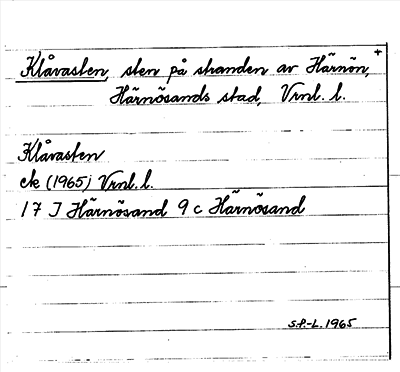 +
Klåvasten, sten på stranden av Härnön,
Härnösands stad, Vrnl. l.
Klåvasten
ek (1965) Vrnl. l.
17 J Härnösand 9 c Härnösand
S.P.-L. 1965